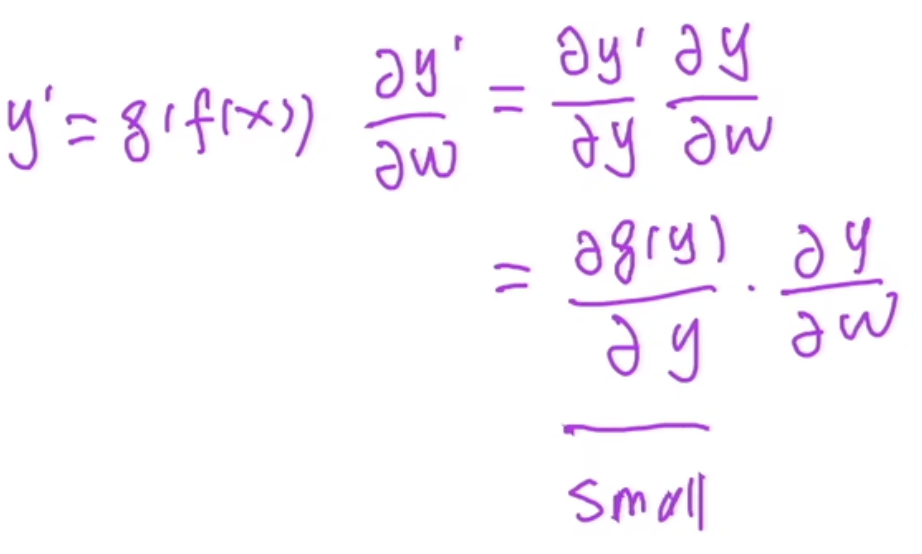 y' = g(f(x)) ∂y'/∂w = ∂y'/∂y ∂y/∂w
= ∂g(y)/∂y · ∂y/∂w
small